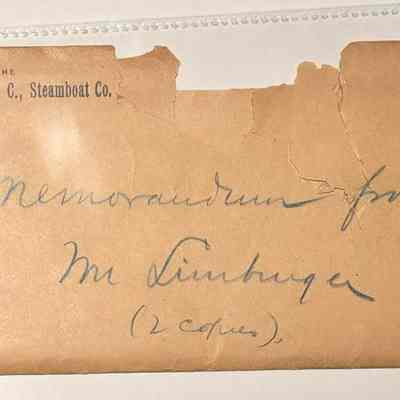 HE
C., Steamboat Co.
Memorandum fro
Mr Limburger
(2 copies).